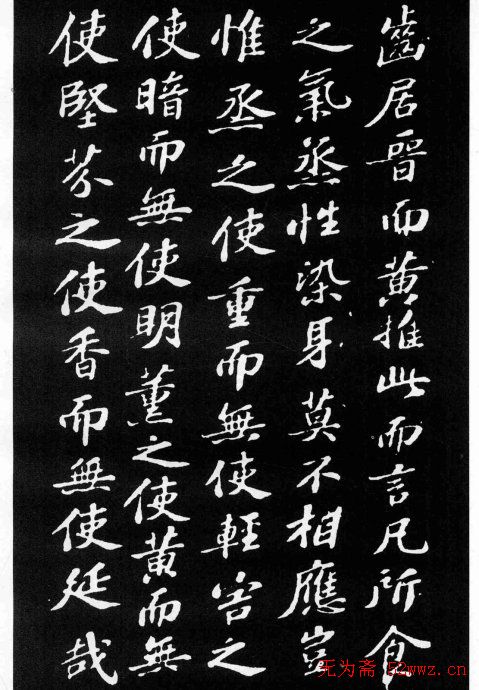 齒居晉而黃推此而言凡所食
之氣蒸性染身莫不相應豈
惟烝之使重而無使輕害之
使暗而無使明薰之使黃而無
使堅芬之使香而無使延哉
无为斋 52wwz.cn